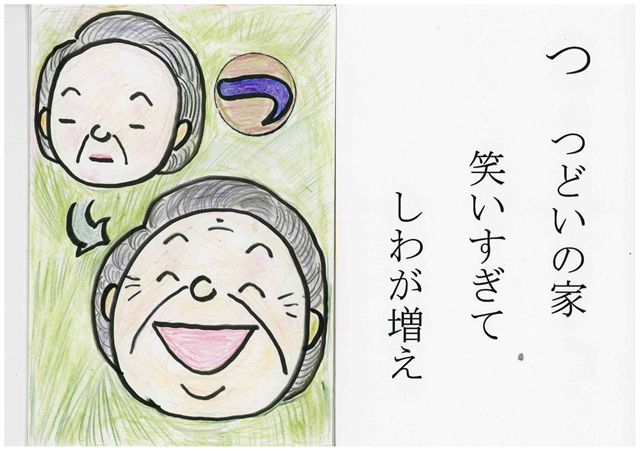 つ
つ　つどいの家
笑いすぎて
しわが増え